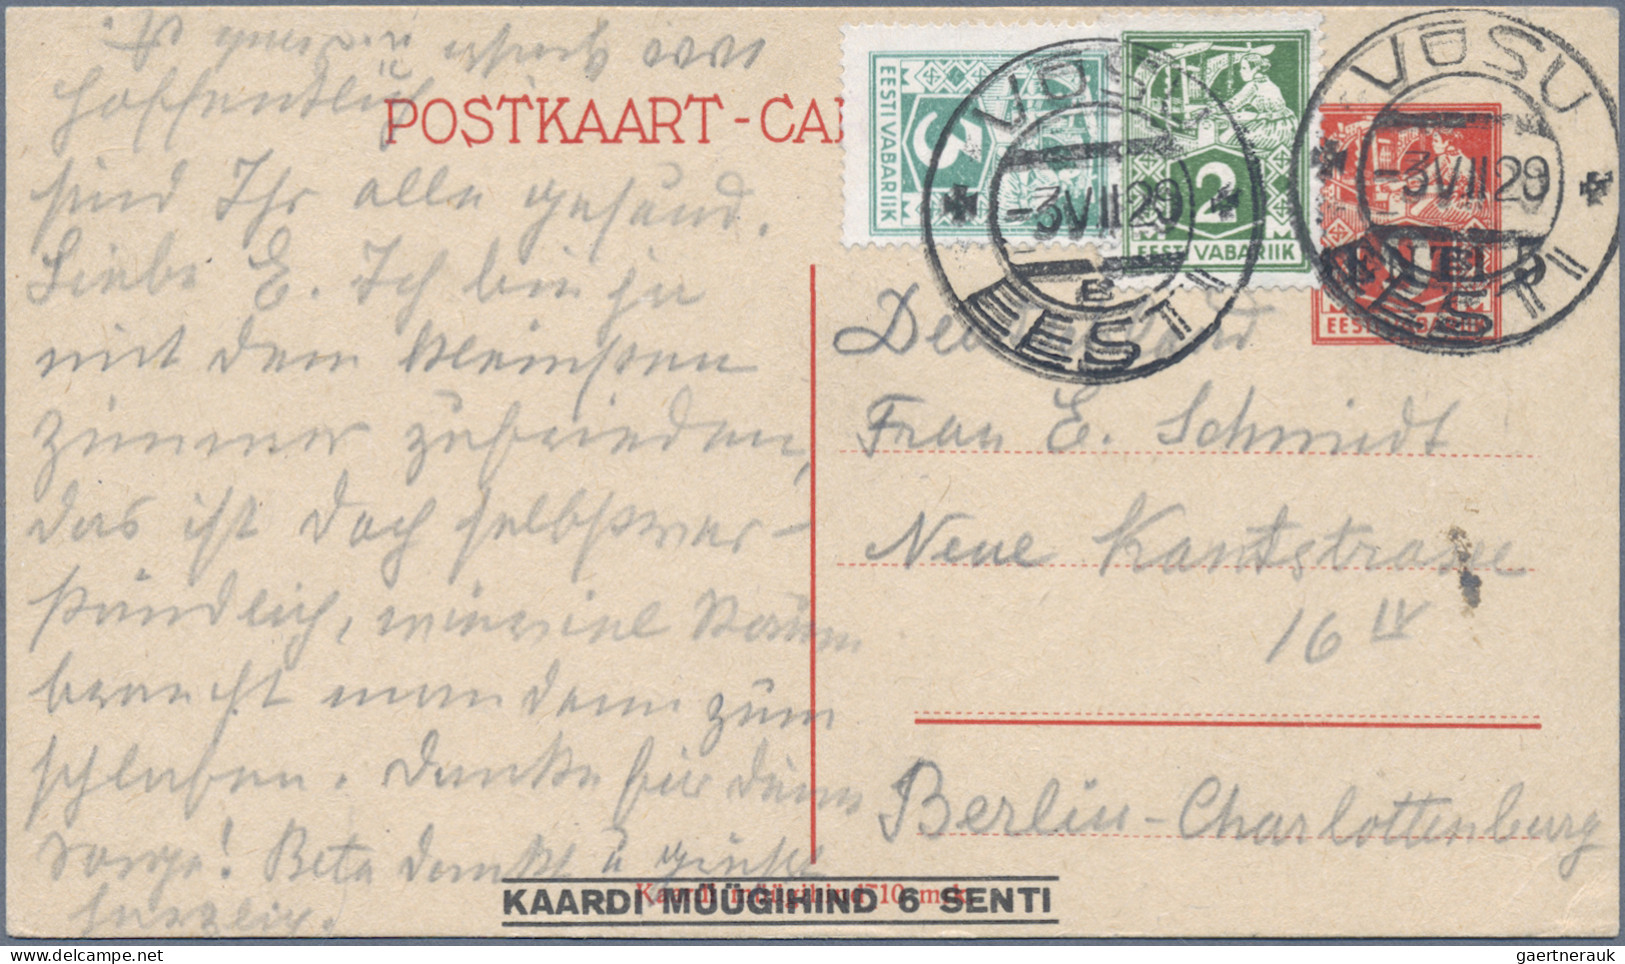 Hoffentlich
POSTKAART - CA
sind Ihr alle gesund.
Liebe E. Ich bin ja
mit dem kleinsten
Zimmer zufrieden,
das ist doch selbstver-
ständlich, wieviel Raum
braucht man denn zum
schlafen. Danke für Deine
Sorge! Beta dankt u grüsst
herzlich.
EESTI VABARIIK
2
EESTI VABARIIK
2
EESTI VABARIIK
SENTI 5
VÕSU
-3 VII 29
B
EESTI
VÕSU
-3 VII 29
EESTI
Deutschland
Frau E. Schmidt
Neue Kantstrasse
16 IV
Berlin-Charlottenburg
Kaardi müügihind 10 mrk.
KAARDI MÜÜGIHIND 6 SENTI
gaertnerauk